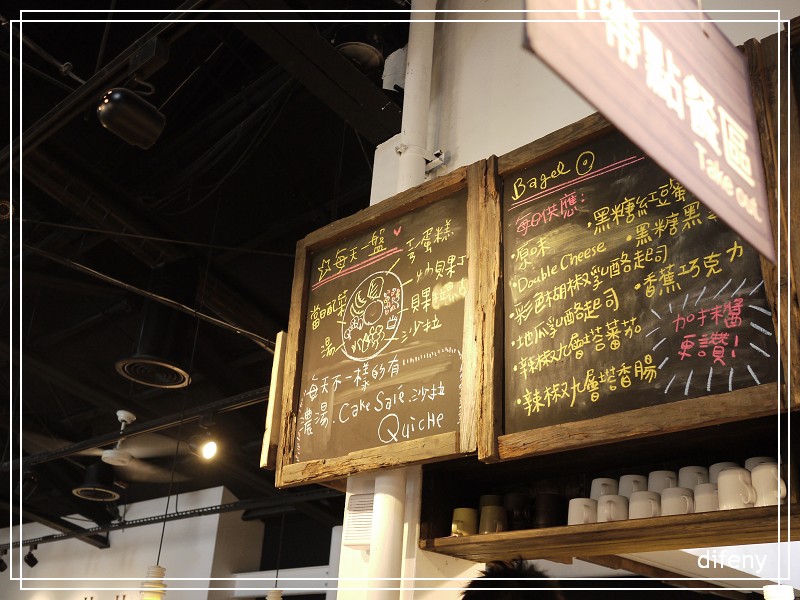 帶點餐區
Take out
☆每天一盤♥
蛋糕
當日配菜
貝果
湯
沙拉
每天不一樣的有
濃湯.Cake Salé.沙拉
Quiche
Bagel
每日供應:
·原味
·黑糖紅豆
·Double Cheese
·黑糖黑
·彩色胡椒乳酪起司
·香蕉巧克力
·地瓜乳酪起司
·辣椒九層塔蕃茄
·辣椒九層塔香腸
加抹醬
更讚!
difeny